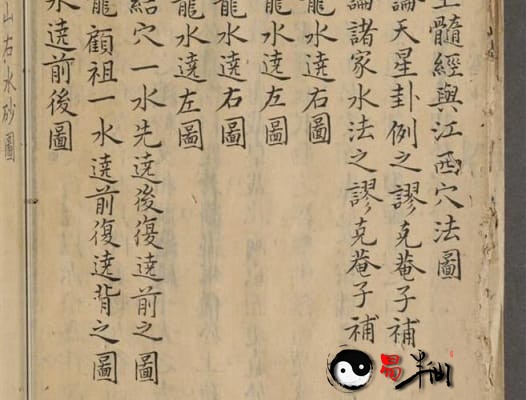 玉髓經與江西穴法圖
論天星卦例之謬克菴子補
論諸家水法之謬克菴子補
龍水遶右圖
龍水遶左圖
龍水遶右圖
龍水遶左圖
結穴一水先遶後復遶前之圖
龍顧祖一水遶前復遶背之圖
水遶前後圖
山右水砂圖
易